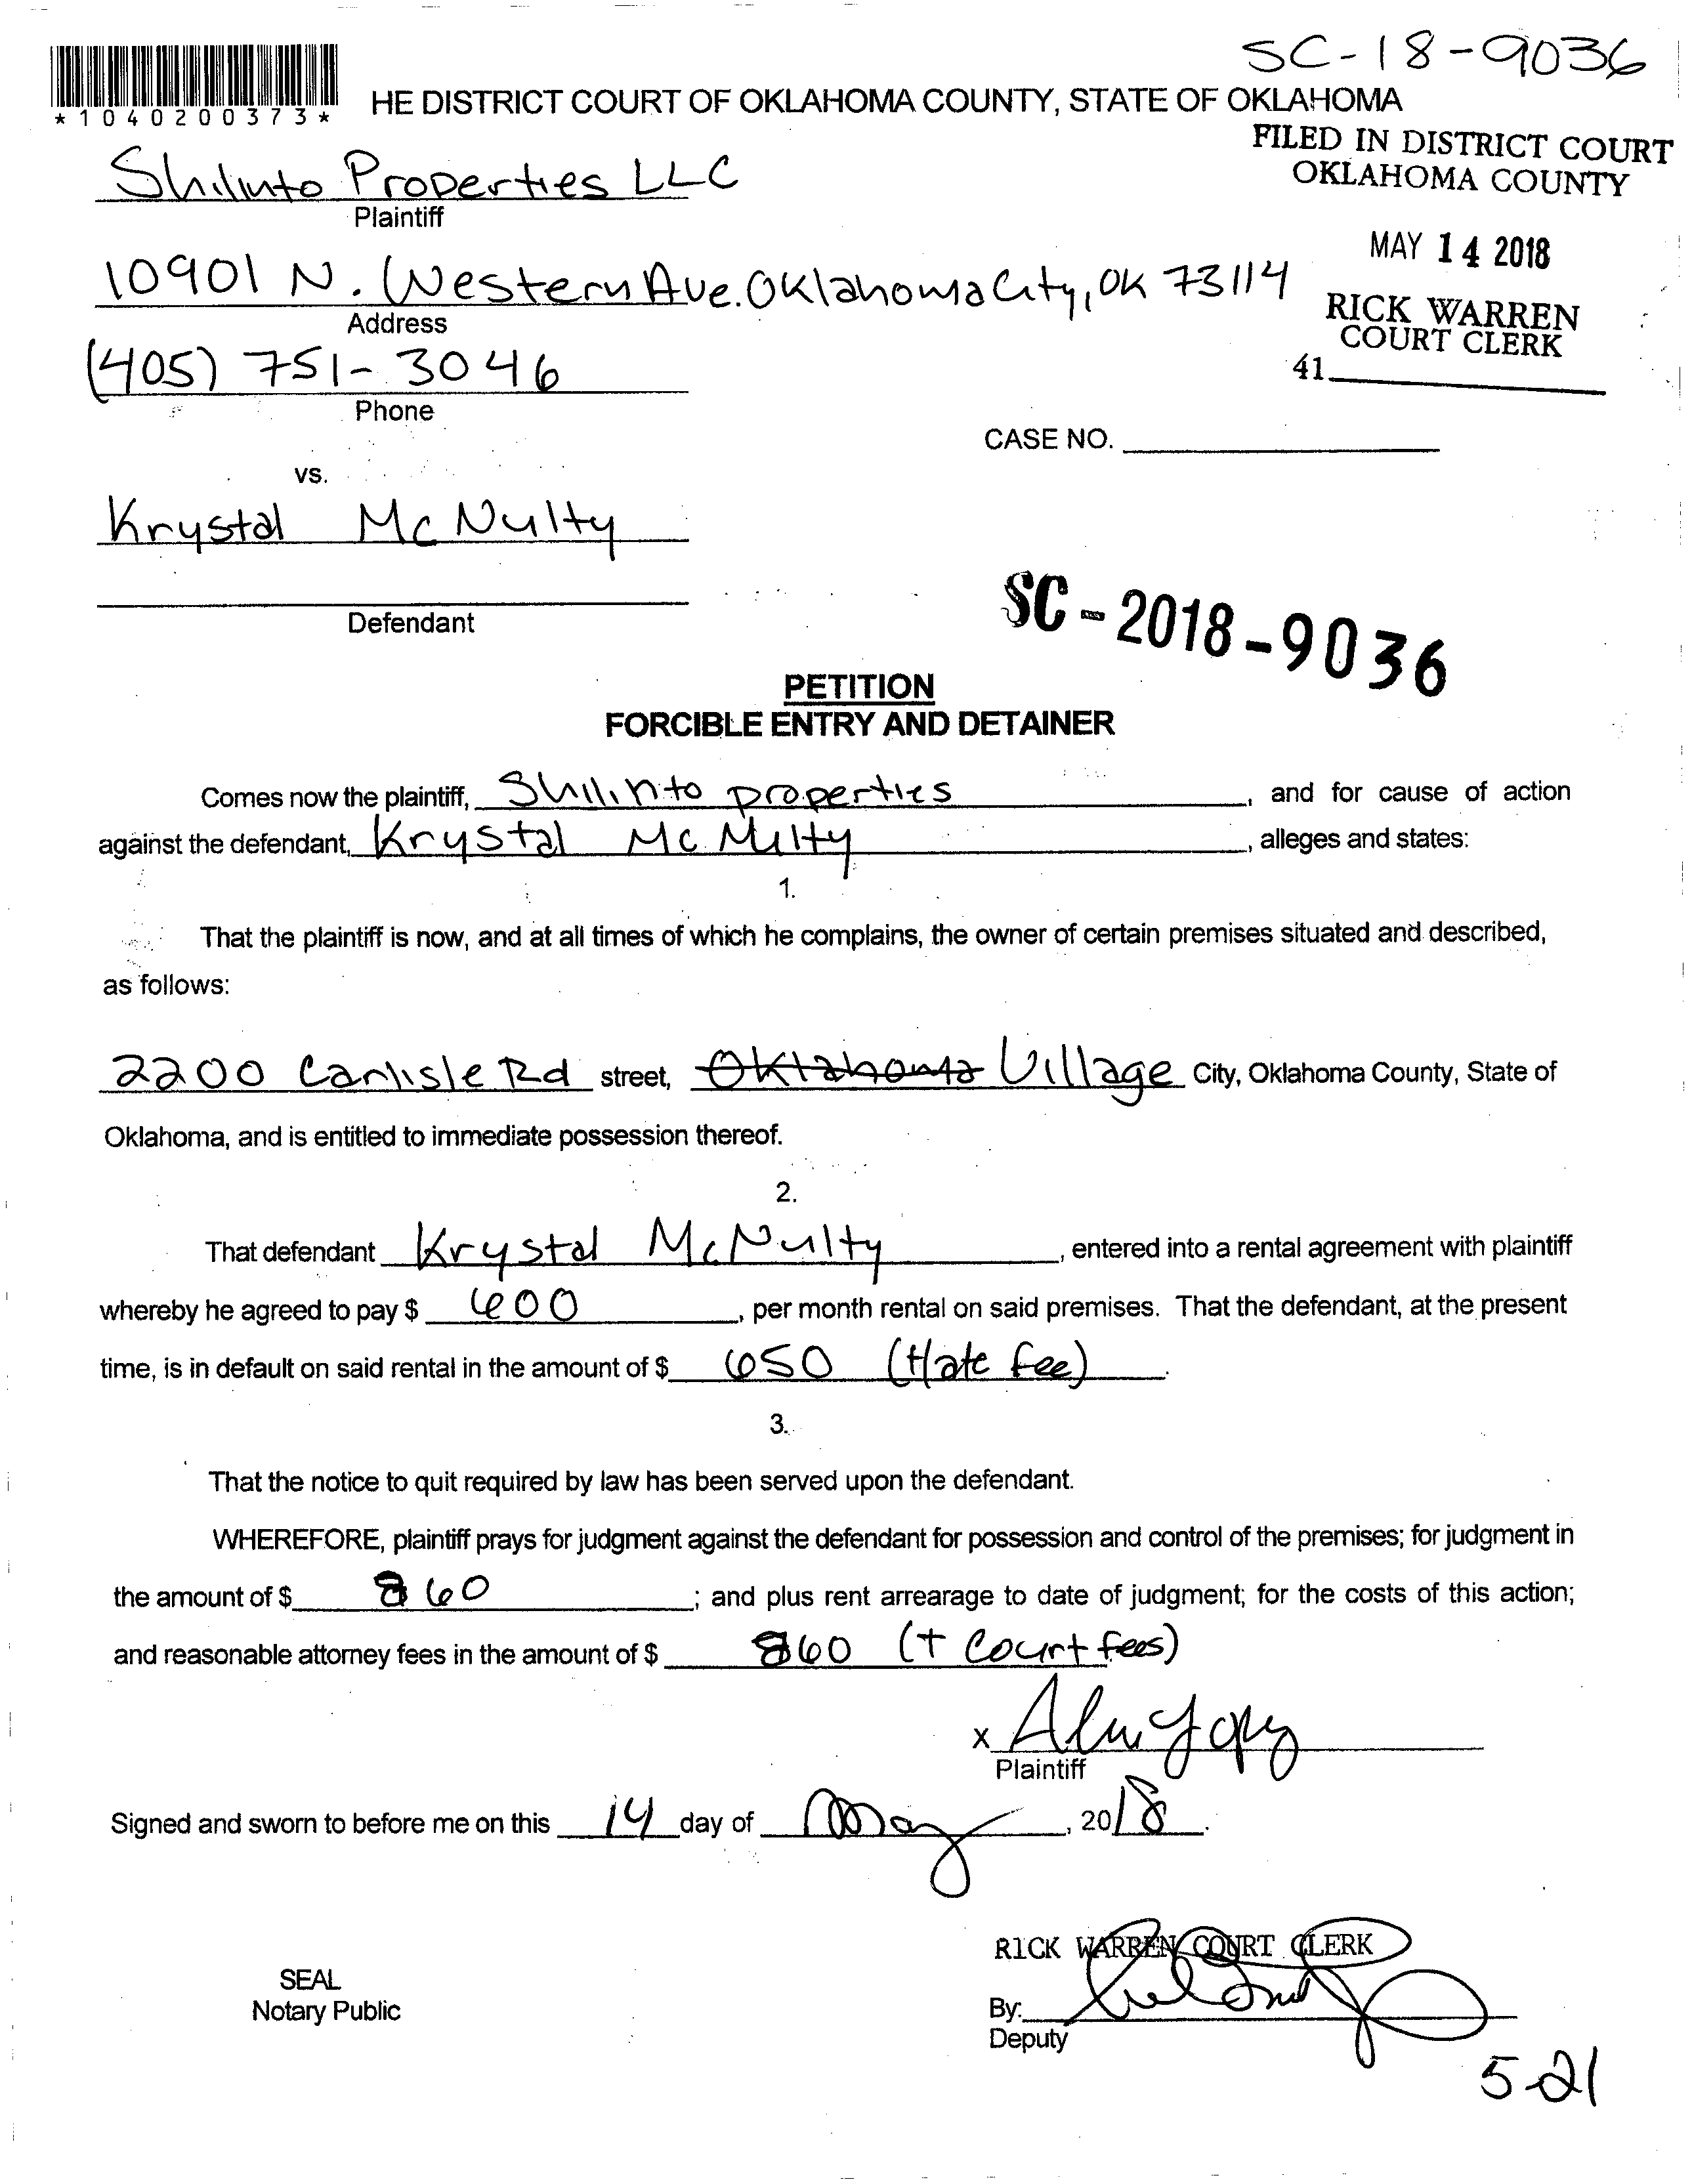 SC-18-9036
*1040200373*
HE DISTRICT COURT OF OKLAHOMA COUNTY, STATE OF OKLAHOMA
FILED IN DISTRICT COURT
OKLAHOMA COUNTY
Shilinto Properties LLC
Plaintiff
MAY 14 2018
10901 N. Western Ave. Oklahoma City, OK 73114
Address
RICK WARREN
COURT CLERK
41
(405) 751-3046
Phone
CASE NO.
vs.
Krystal McNulty
Defendant
SC-2018-9036
PETITION
FORCIBLE ENTRY AND DETAINER
Comes now the plaintiff, Shilinto properties, and for cause of action
against the defendant, Krystal McNulty, alleges and states:
1.
That the plaintiff is now, and at all times of which he complains, the owner of certain premises situated and described,
as follows:
2200 Carlisle Rd street, Oklahoma Village City, Oklahoma County, State of
Oklahoma, and is entitled to immediate possession thereof.
2.
That defendant Krystal McNulty, entered into a rental agreement with plaintiff
whereby he agreed to pay $ 600, per month rental on said premises. That the defendant, at the present
time, is in default on said rental in the amount of $ 650 (+late fee).
3.
That the notice to quit required by law has been served upon the defendant.
WHEREFORE, plaintiff prays for judgment against the defendant for possession and control of the premises; for judgment in
the amount of $ 860; and plus rent arrearage to date of judgment; for the costs of this action;
and reasonable attorney fees in the amount of $ 860 (+ Court fees)
x
Plaintiff
Signed and sworn to before me on this 14 day of May, 2018.
RICK WARREN COURT CLERK
SEAL
Notary Public
By:
Deputy
5-21